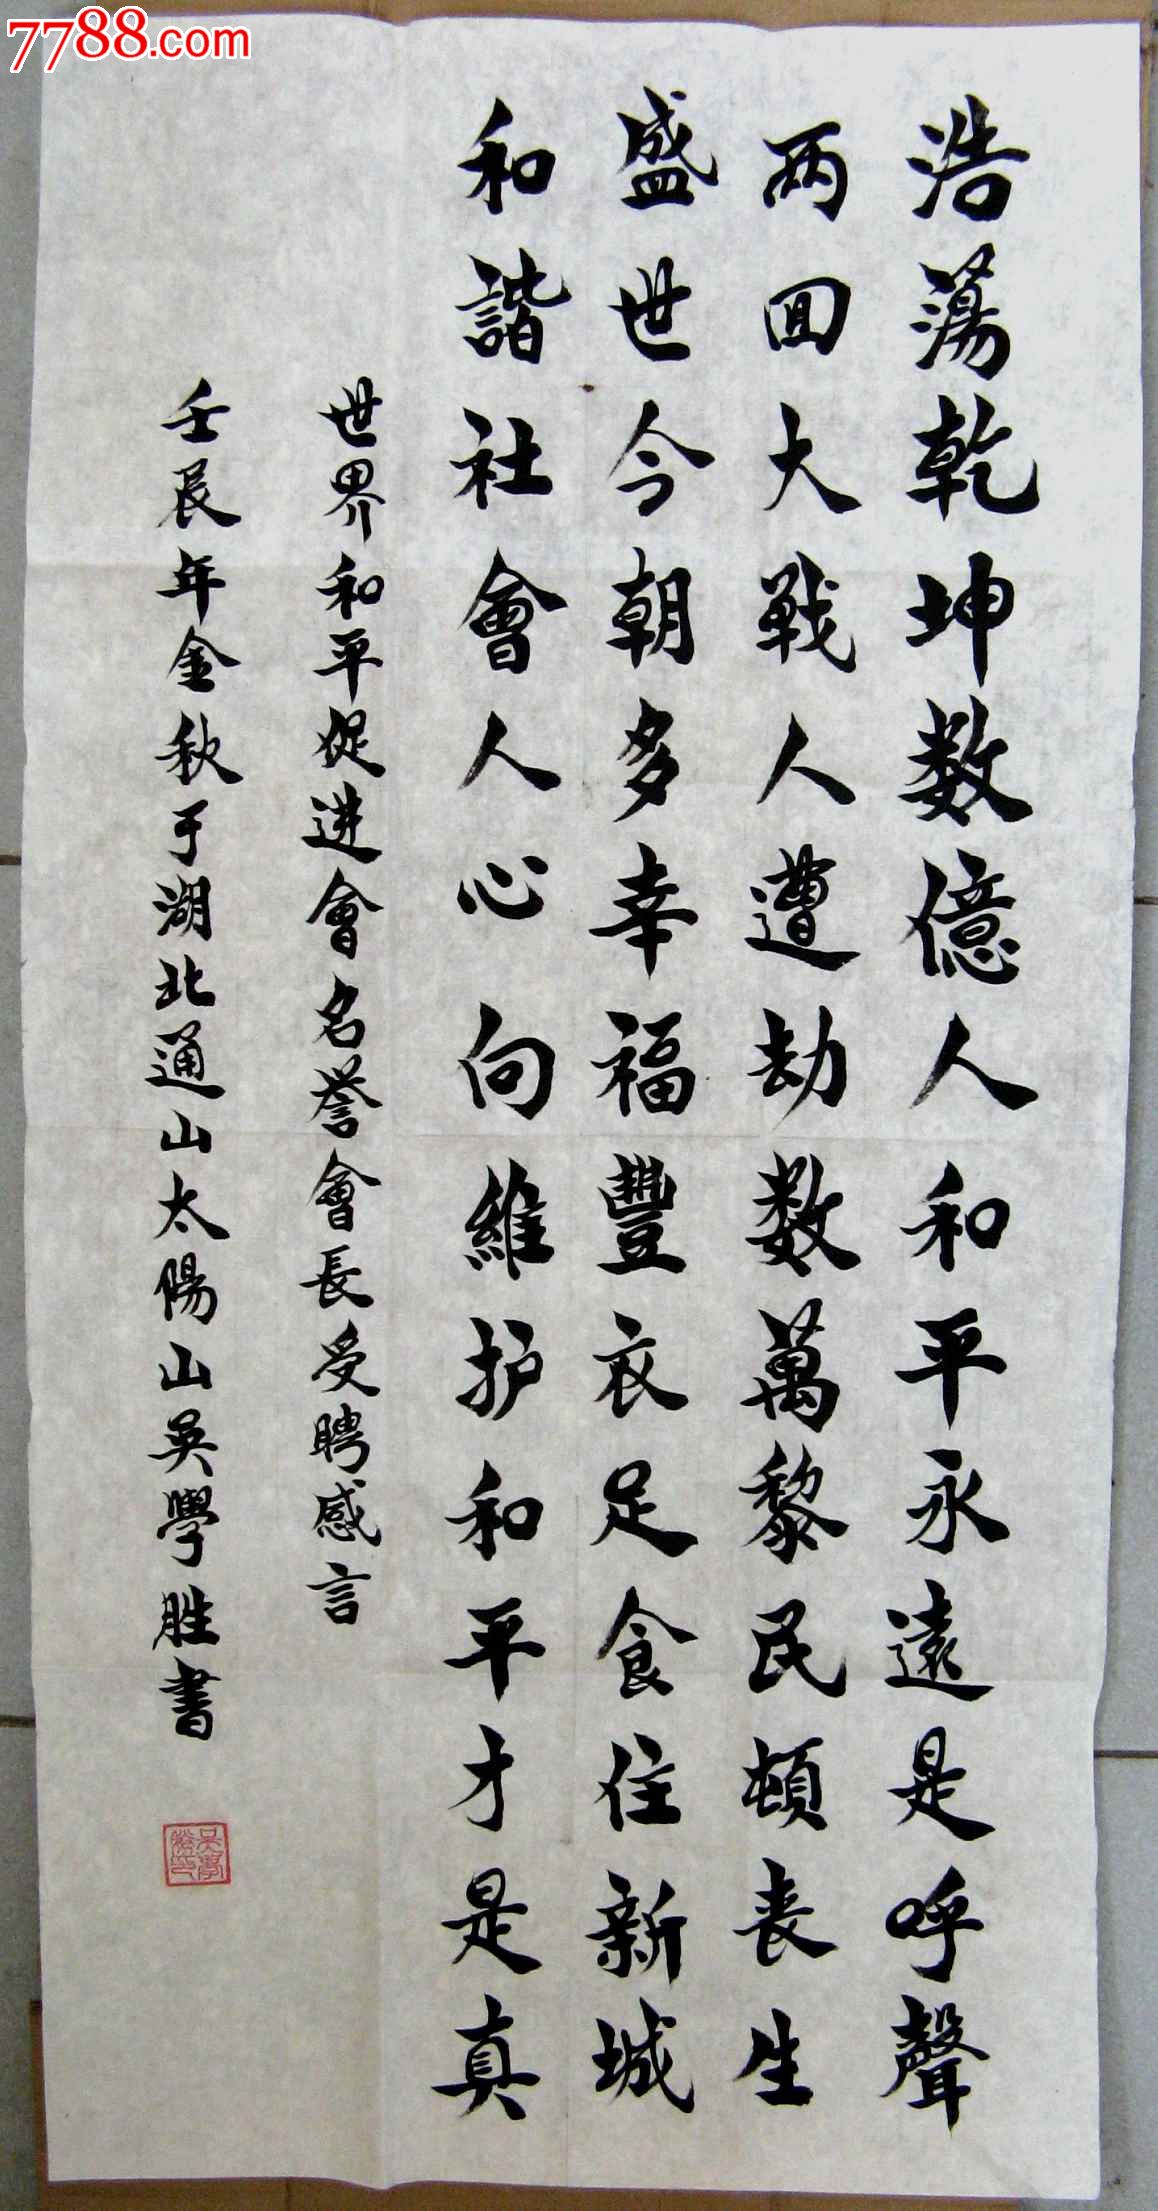 7788.com
浩蕩乾坤数億人和平永遠是呼聲
两回大戦人遭劫数萬黎民頓丧生
盛世今朝多幸福豐衣足食住新城
和諧社會人心向維护和平才是真
世界和平促进會名誉會長受聘感言
壬辰年金秋于湖北通山太陽山吳學胜書